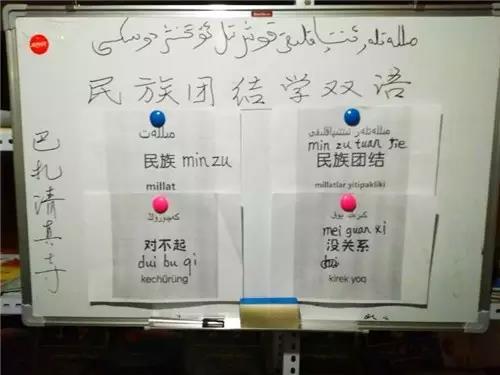 مىللەتلەر ئىتتىپاقلىقى قوش تىل ئۆگىنىش دوسكىسى
民族团结学双语
巴扎清真寺
مىللەت
民族 min zu
millat
مىللەتلەر ئىتتىپاقلىقى
min zu tuan jie
民族团结
millatlar yitipakliki
كەچۈرۈڭ
对不起
dui bu qi
kechürüng
كېرەك يوق
mei guan xi
没关系
kirek yoq